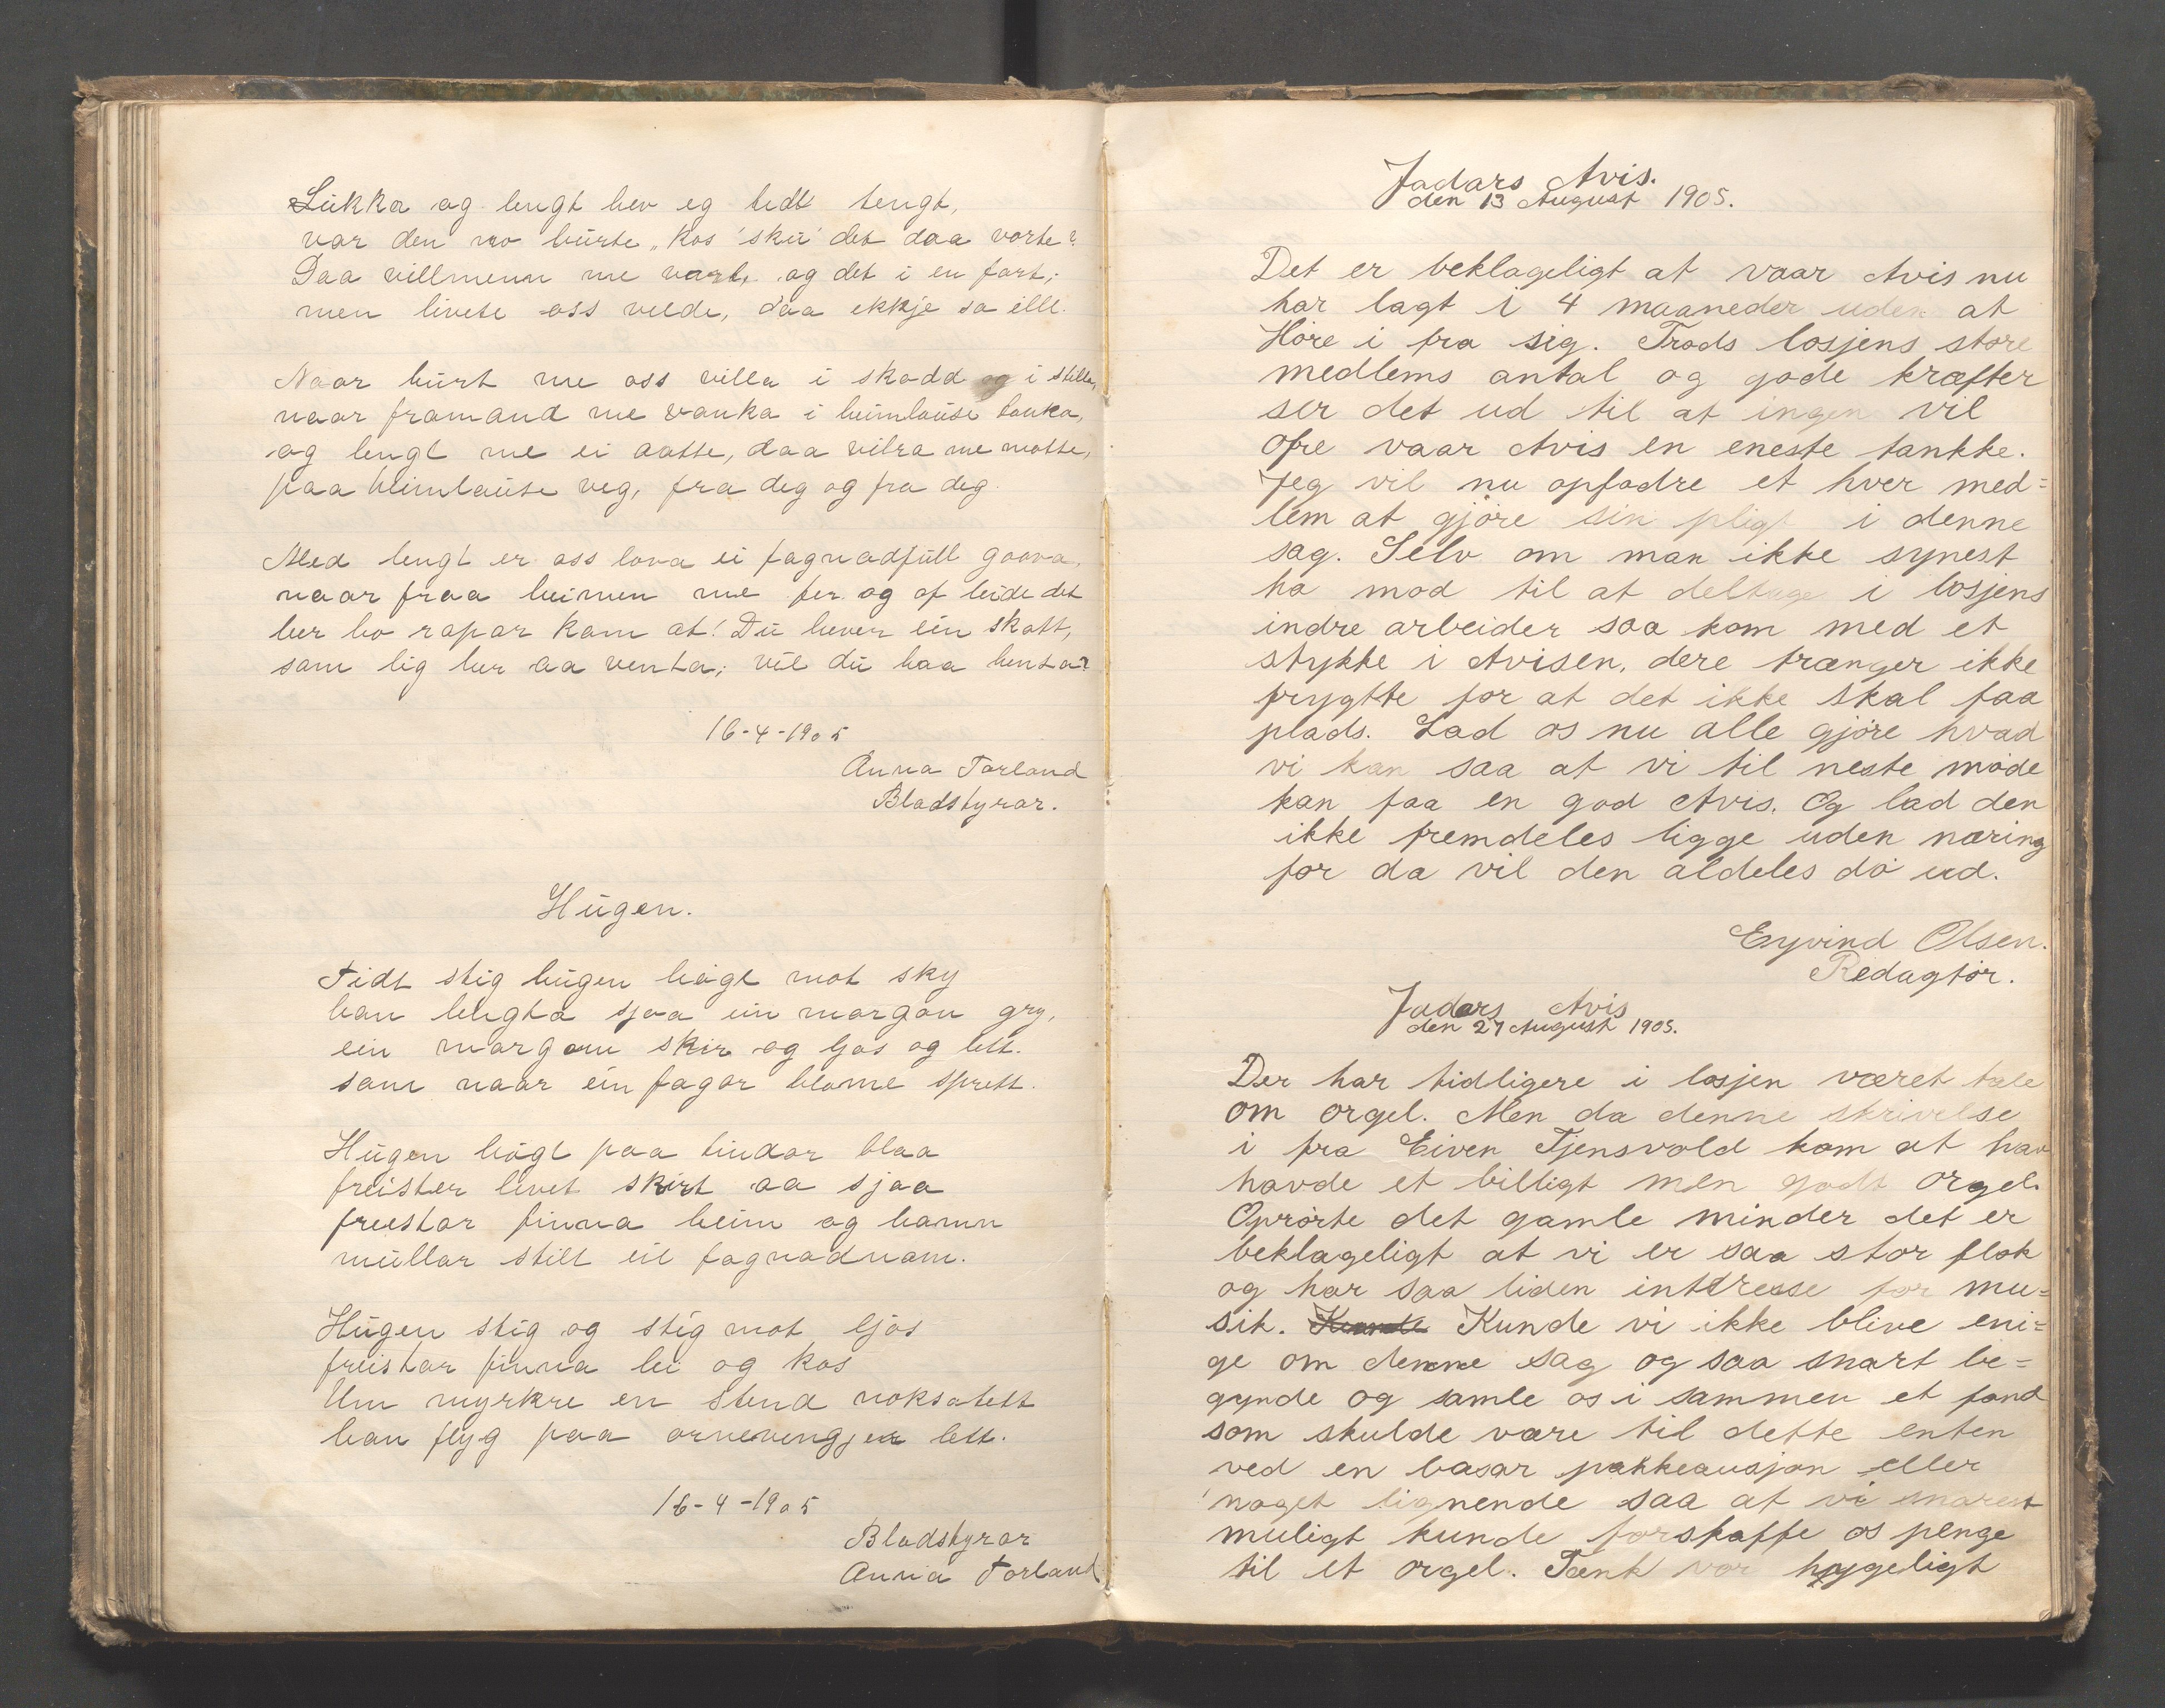 Lükka og lengt hev eg tidt tengt,
var den no bürte, "kos 'skü' det daa vorte?
Daa villmenn me vart, og det i en fart;
men livete oss velde, daa ekkje so ille.
Naar bürt me oss villa i skodd og i stilla,
naar framand me vanka i heimlause tanka,
og lengt me ei aatte, daa vilra me maatte,
paa heimlause veg, fra deg og fra deg.
Med lengt er oss lova ei fagnadfüll gaava,
naar fraa heimen me fer og af leide det
ber ho ropar kom at! Dü hever ein skatt,
som lig her aa venta; vil dü haa henta?
16-4-1905
Anna Torland
Bladstyrar.
Hügen.
Tidt stig hügen høgt mot sky
han lengta sjaa ein morgon gry,
ein morgon skir og ljos og lett.
som naar ein fagar blome sprett.
Hügen høgt paa tindar blaa
freistar livet skirt aa sjaa
freistar finna heim og hamn
müllar stilt eit fagnadnam.
Hügen stig og stig mot ljos
freistar finna lei og kos
Um myrkre en stend noksotett
han flyg paa ornevengjer lett.
16-4-1905
Bladstyrar
Anna Torland
Jadars Avis.
den 13 August 1905.
Det er beklageligt at vaar Avis nu
har lagt i 4 maaneder uden at
Høre i fra sig. Trods losjens store
medlems antal og gode kræfter
ser det ud til at ingen vil
ofre vaar Avis en eneste tankke.
Jeg vil nu opfodre et hver med=
lem at gjøre sin pligt i denne
sag. Selv om man ikke synest
ha mod til at deltage i losjens
indre arbeider saa kom med et
stykke i Avisen, dere trænger ikke
frygtte for at det ikke skal faa
plads. Lad os nu alle gjøre hvad
vi kan saa at vi til neste møde
kan faa en god Avis. Og lad den
ikke fremdeles ligge uden næring
for da vil den aldeles dø ud.
Enyvind Olsen.
Redagtør.
Jadars Avis
den 27 August 1905.
Der har tidligere i losjen været tale
om orgel. Men da denne skrivelse
i fra Eiven Tjensvold kom at han
havde et billigt men godt orgel.
Oprørte det gamle minder det er
beklageligt at vi er saa stor flok
og har saa liden intdresse for mu=
sik. Kunde Kunde vi ikke blive eni=
ge om denne sag og saa snart be=
gynde og samle os i sammen et fond
som skulde være til dette enten
ved en basar pakkeausjon eller
noget lignende saa at vi snarest
muligt kunde forskaffe os penge
til et orgel. Tænk vor hygeligt